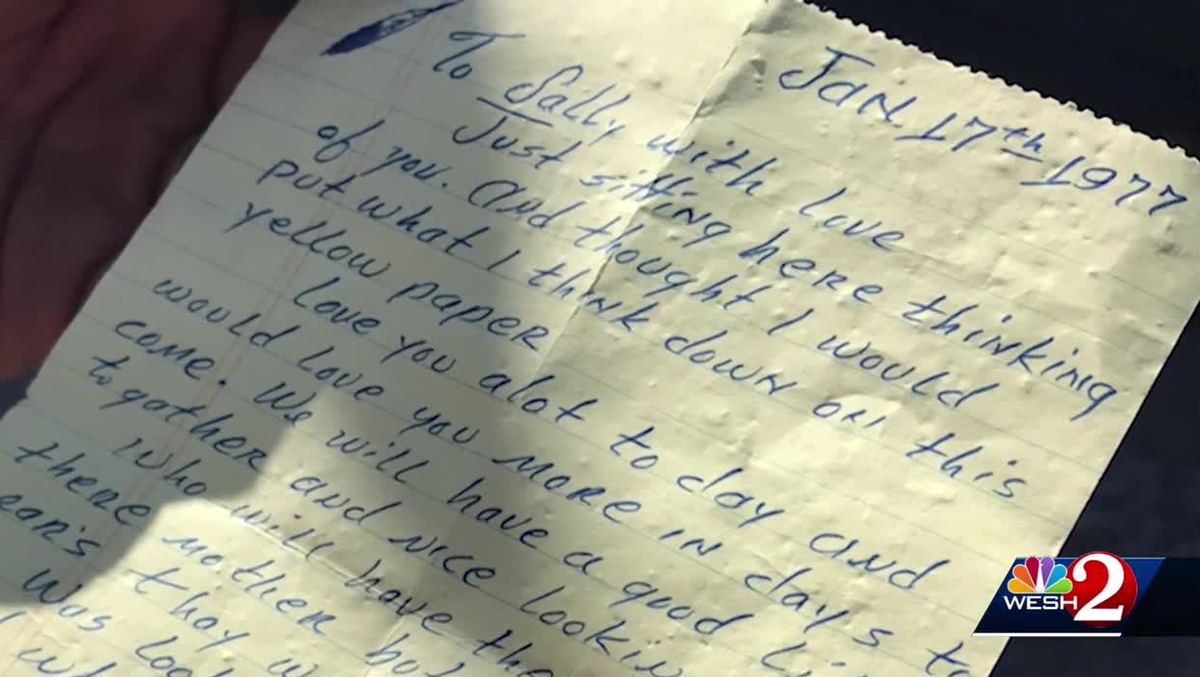 Jan 17th 1977
To Sally with love
Just sitting here thinking
of you. and thought I would
put what I think down on this
yellow paper
Love you alot to day and
would love you more in days to
come. We will have a good
to gather and nice
Who will have the
there mother but
ear's they
was
WESH 2